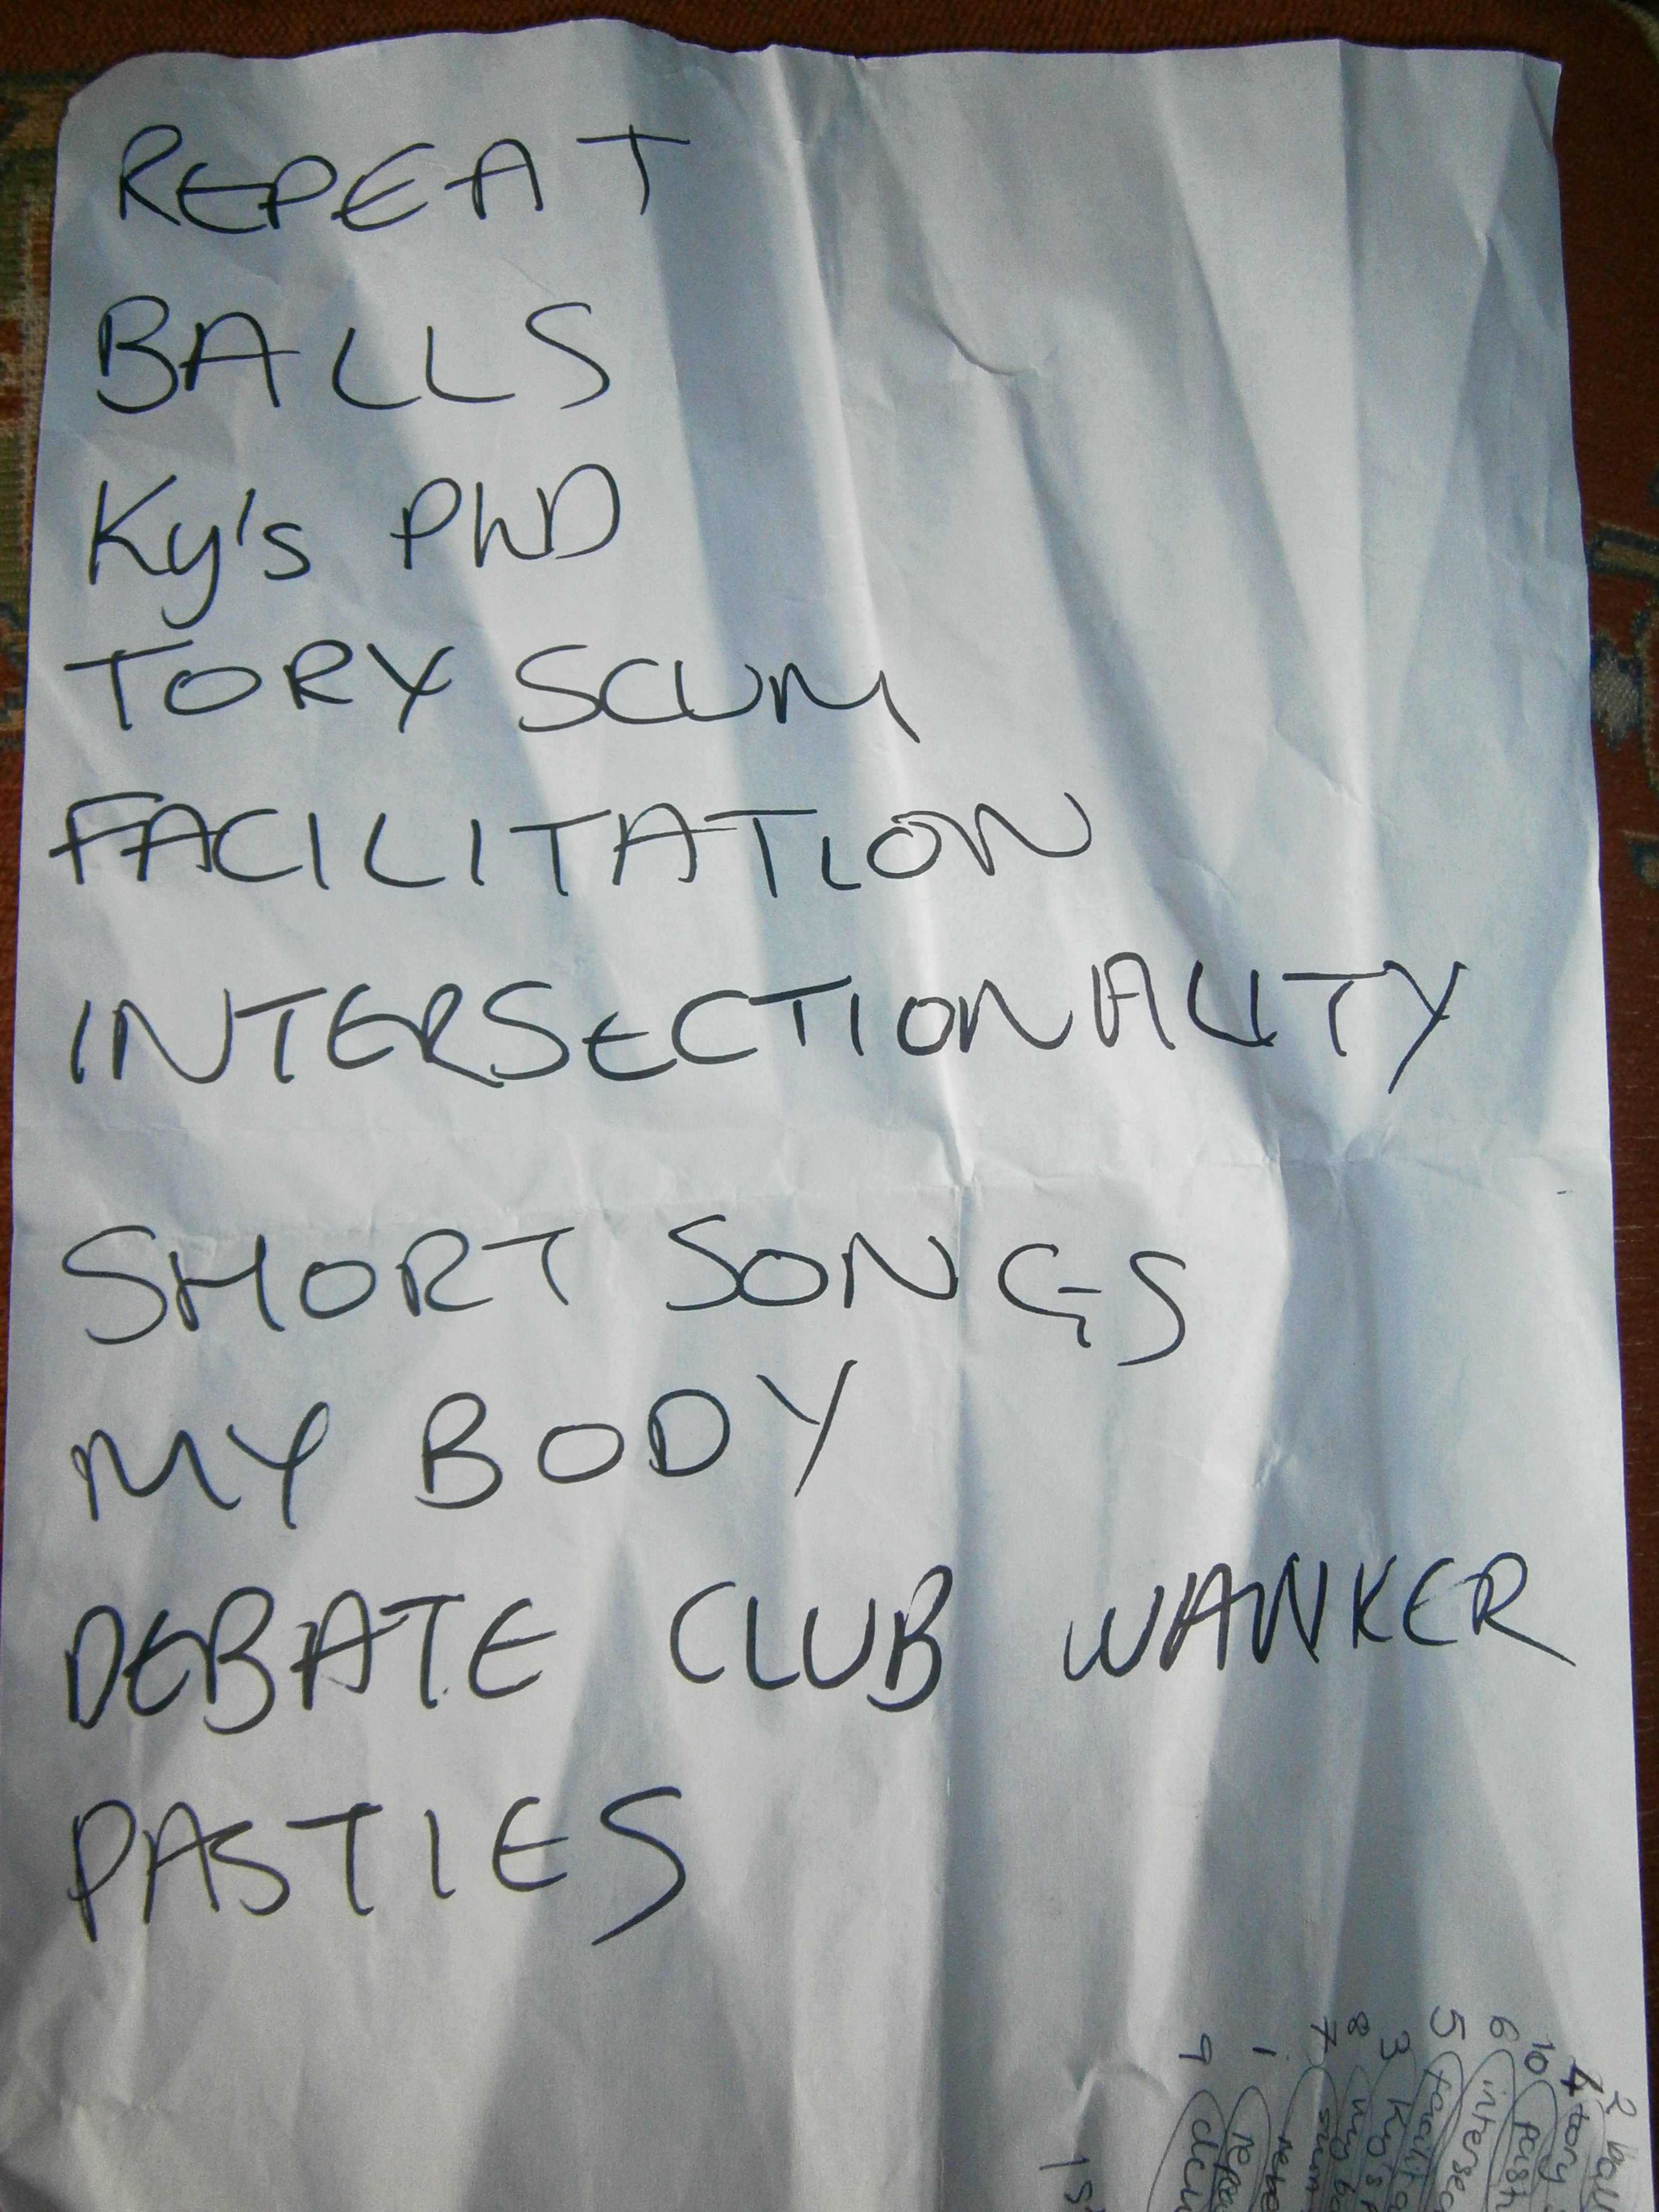 REPEAT
BALLS
Ky's PhD
TORY SCUM
FACILITATION
INTERSECTIONALITY
SHORT SONGS
MY BODY
DEBATE CLUB WANKER
PASTIES
2
4 tory
10
6 intersec
5 facilita
3 Ky's
8 my bo
7
1 repea
9